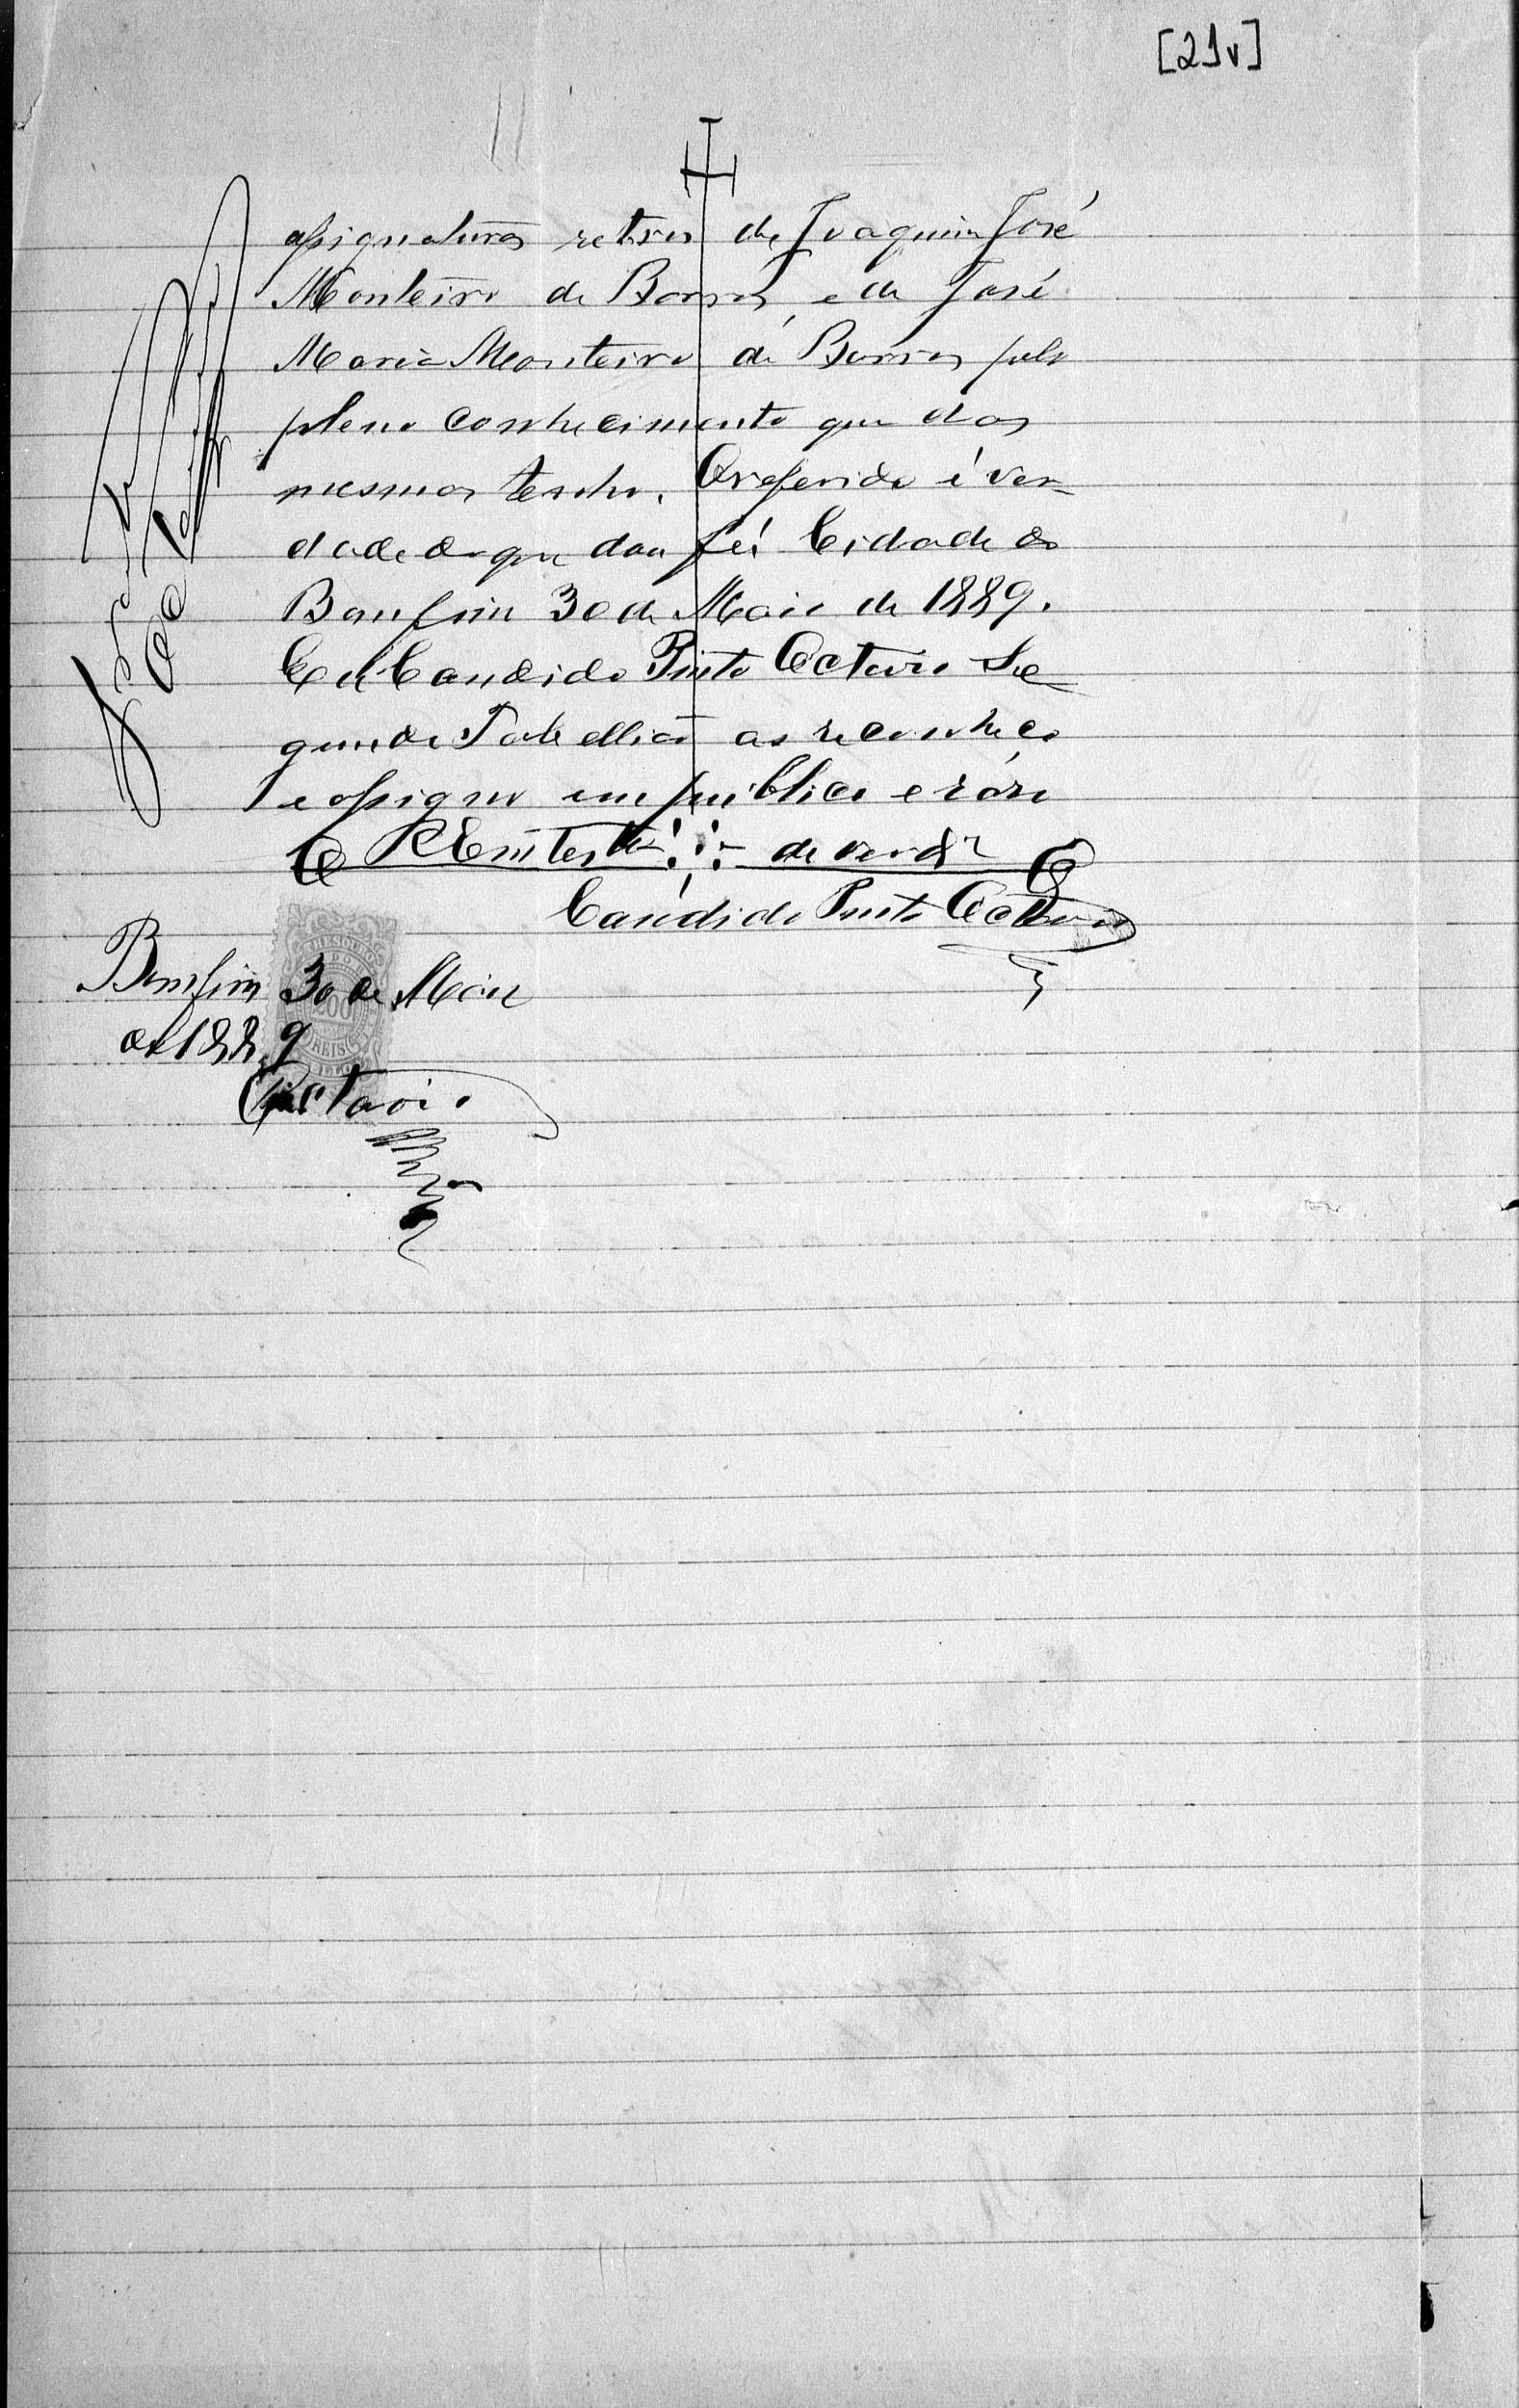 [21v]
assignaturas retros de Joaquim José
Monteiro de Barros, e de José
Maria Monteiro de Barros pelo
pleno conhecimento que das
mesmas tenho. O referido é ver-
dade de que dou fé. Cidade do
Bomfim 30 de Maio de 1889.
Eu Candido Pinto Octavio Se
gundo Tabellião as reconheço
e assigno em publico e raso
Em testº de verdᵉ
Candido Pinto Octavio
Bomfim 30 de Maio
de 1889
Octavio
THESOURO
200
REIS